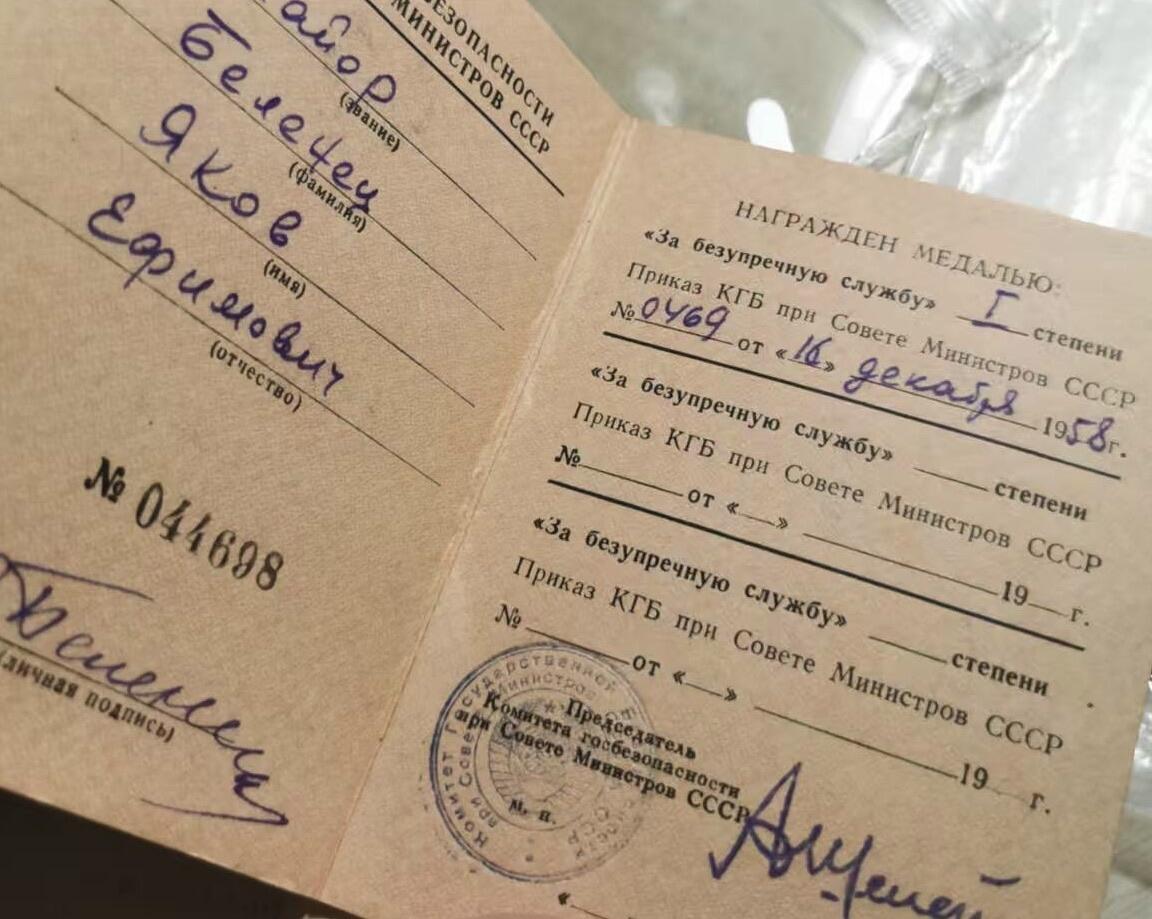 БЕЗОПАСНОСТИ
МИНИСТРОВ СССР
айор
(звание)
Белечец
(фамилия)
Яков
(имя)
Ефимович
(отчество)
№ 044698
(личная подпись)
НАГРАЖДЕН МЕДАЛЬЮ:
«За безупречную службу» I степени
Приказ КГБ при Совете Министров СССР
№ 0469 от «16» декабря 1958 г.
«За безупречную службу» степени
Приказ КГБ при Совете Министров СССР
№ от « » 19 г.
«За безупречную службу» степени
Приказ КГБ при Совете Министров СССР
№ от « » 19 г.
Председатель
Комитета госбезопасности
при Совете Министров СССР
м. п.